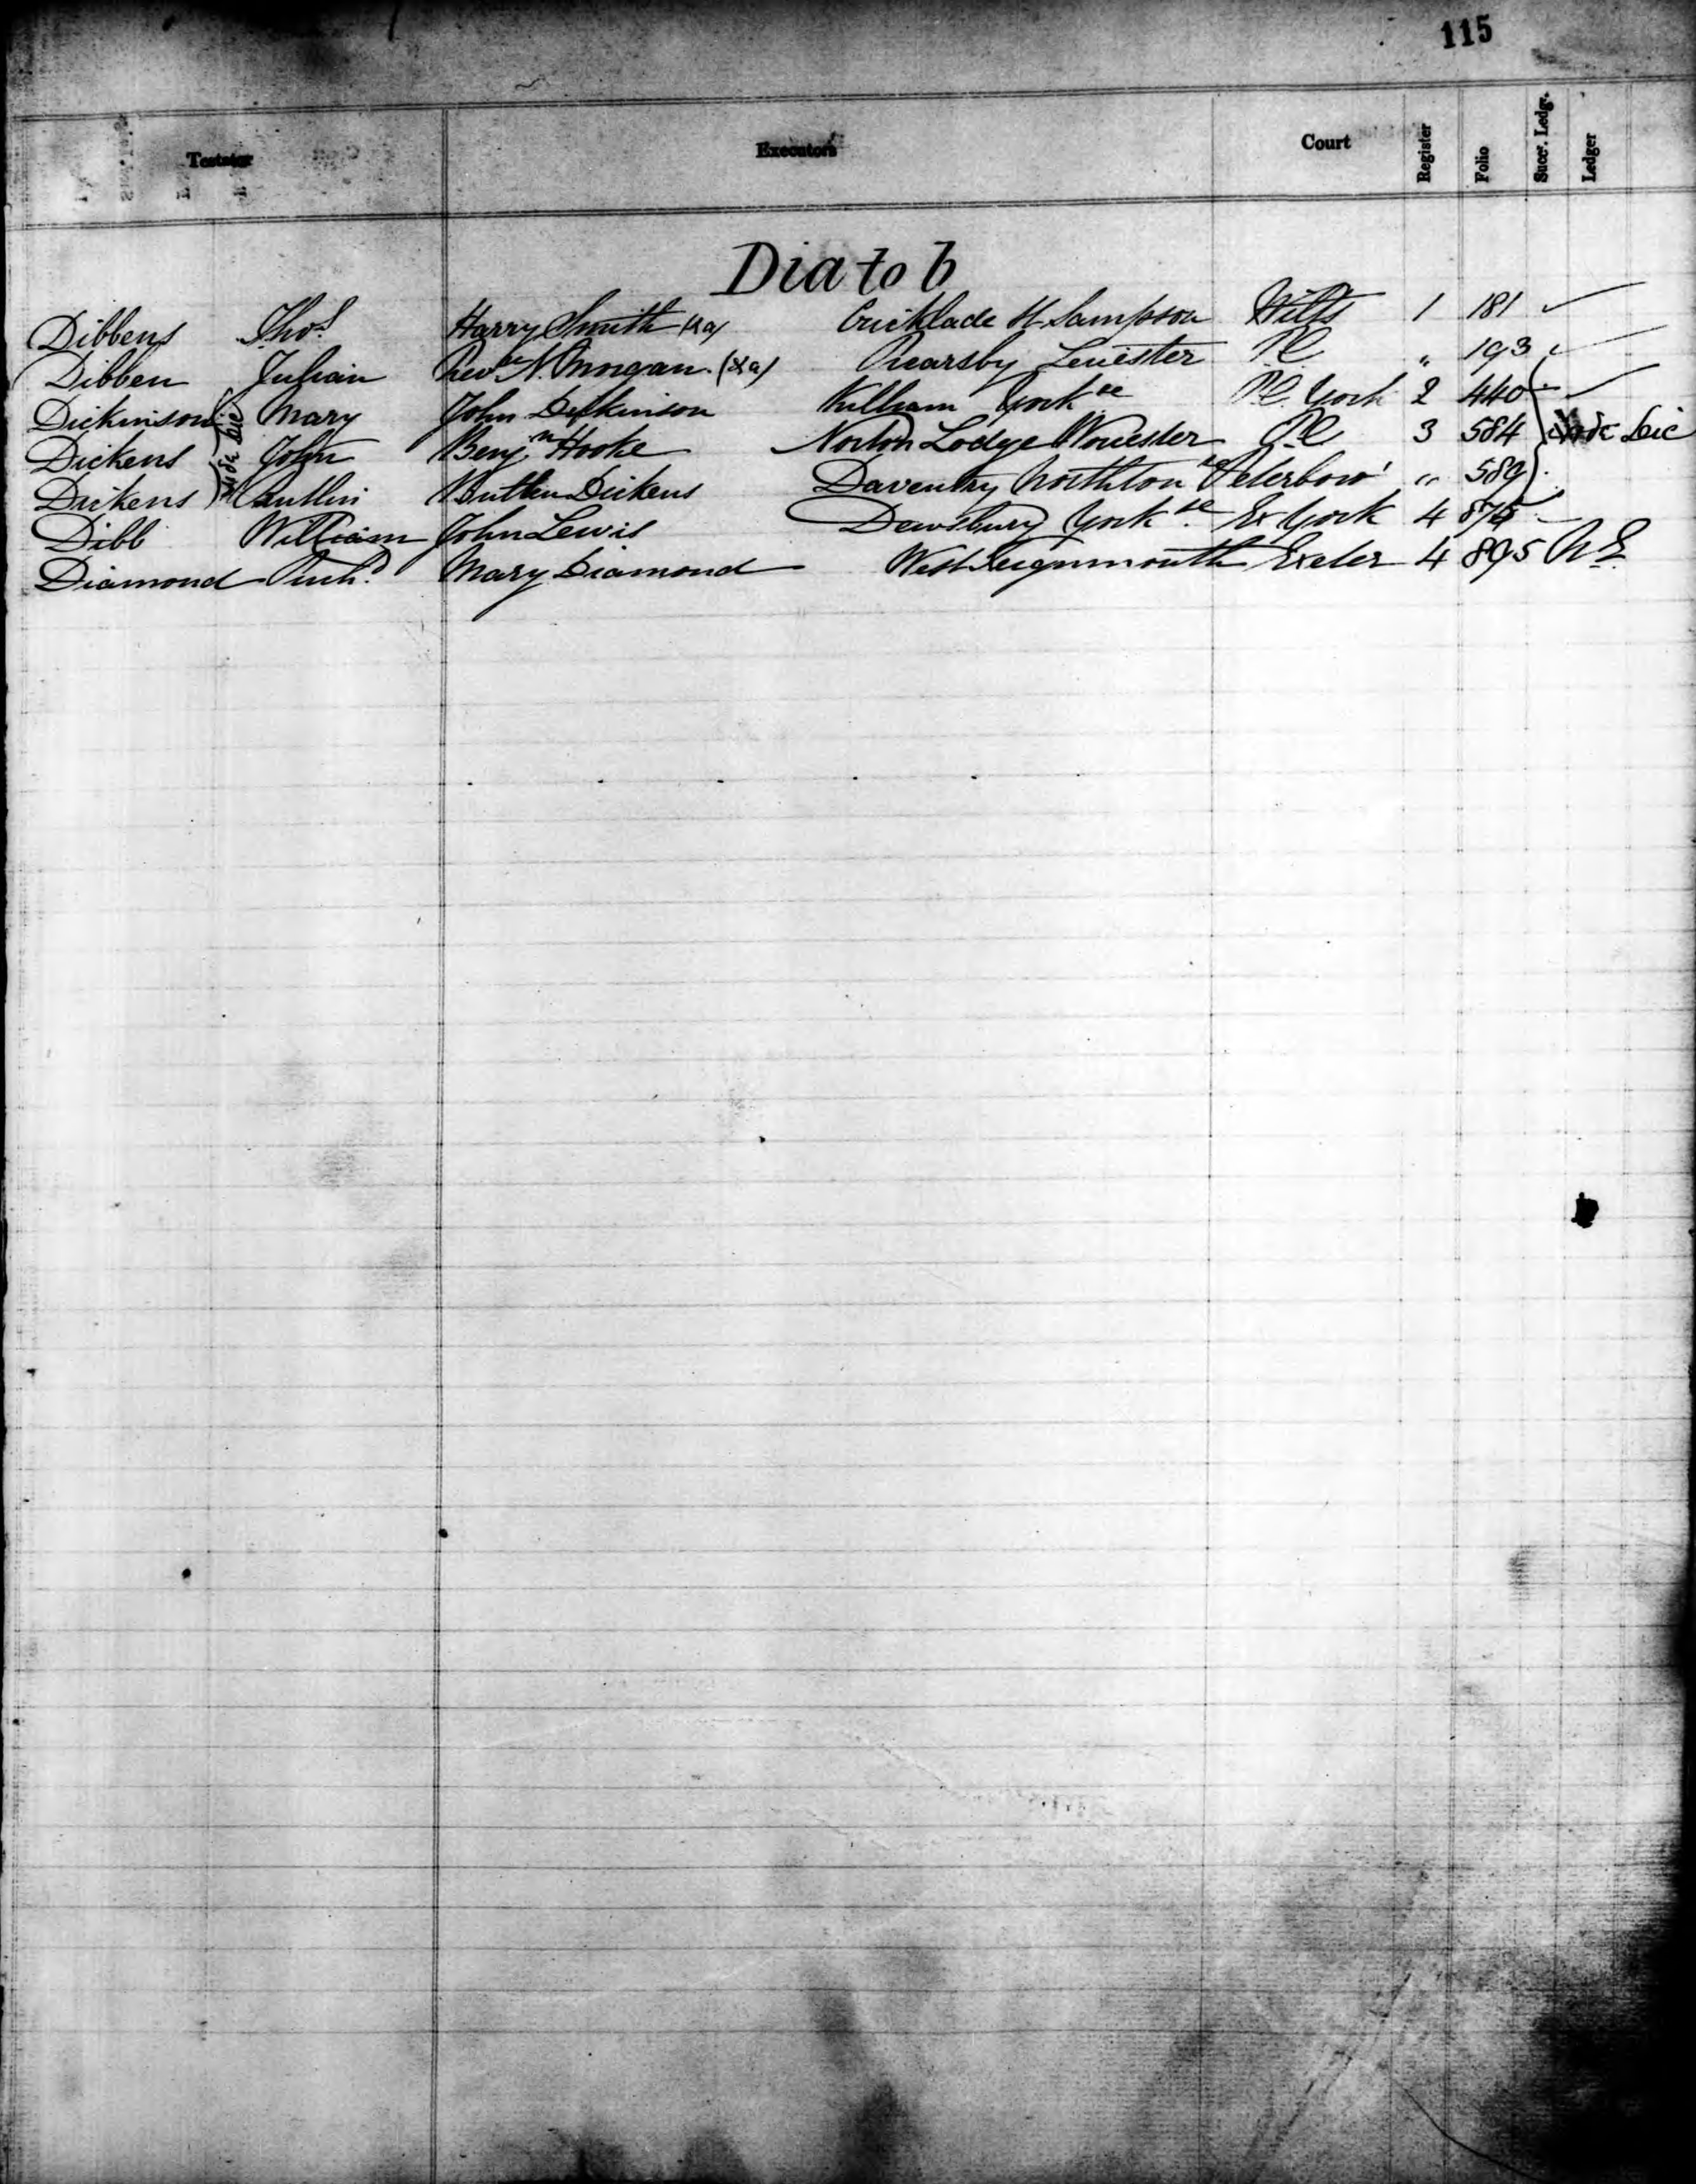 115
Testator Executors Court Register Folio Succr. Ledgr. Ledger
Dia to b
Dibbens Thos Harry Smith Cricklade St Sampson Wilts 1 181
Dibben Julian Revd N. Morgan Rearsby Leicester PC " 193
Dickinson Mary John Dickinson Kilham York PC York 2 440
Dickens John Benjn Hooke Norton Lodge Worcester PC 3 584 Vide Dic
Dickens Butlin Dickens Daventry Northton Peterboro' " 589
Vide Dic
Dibb William John Lewis Dewsbury York Ex York 4
Diamond Richd Mary Diamond West Teignmouth Exeter 4 895